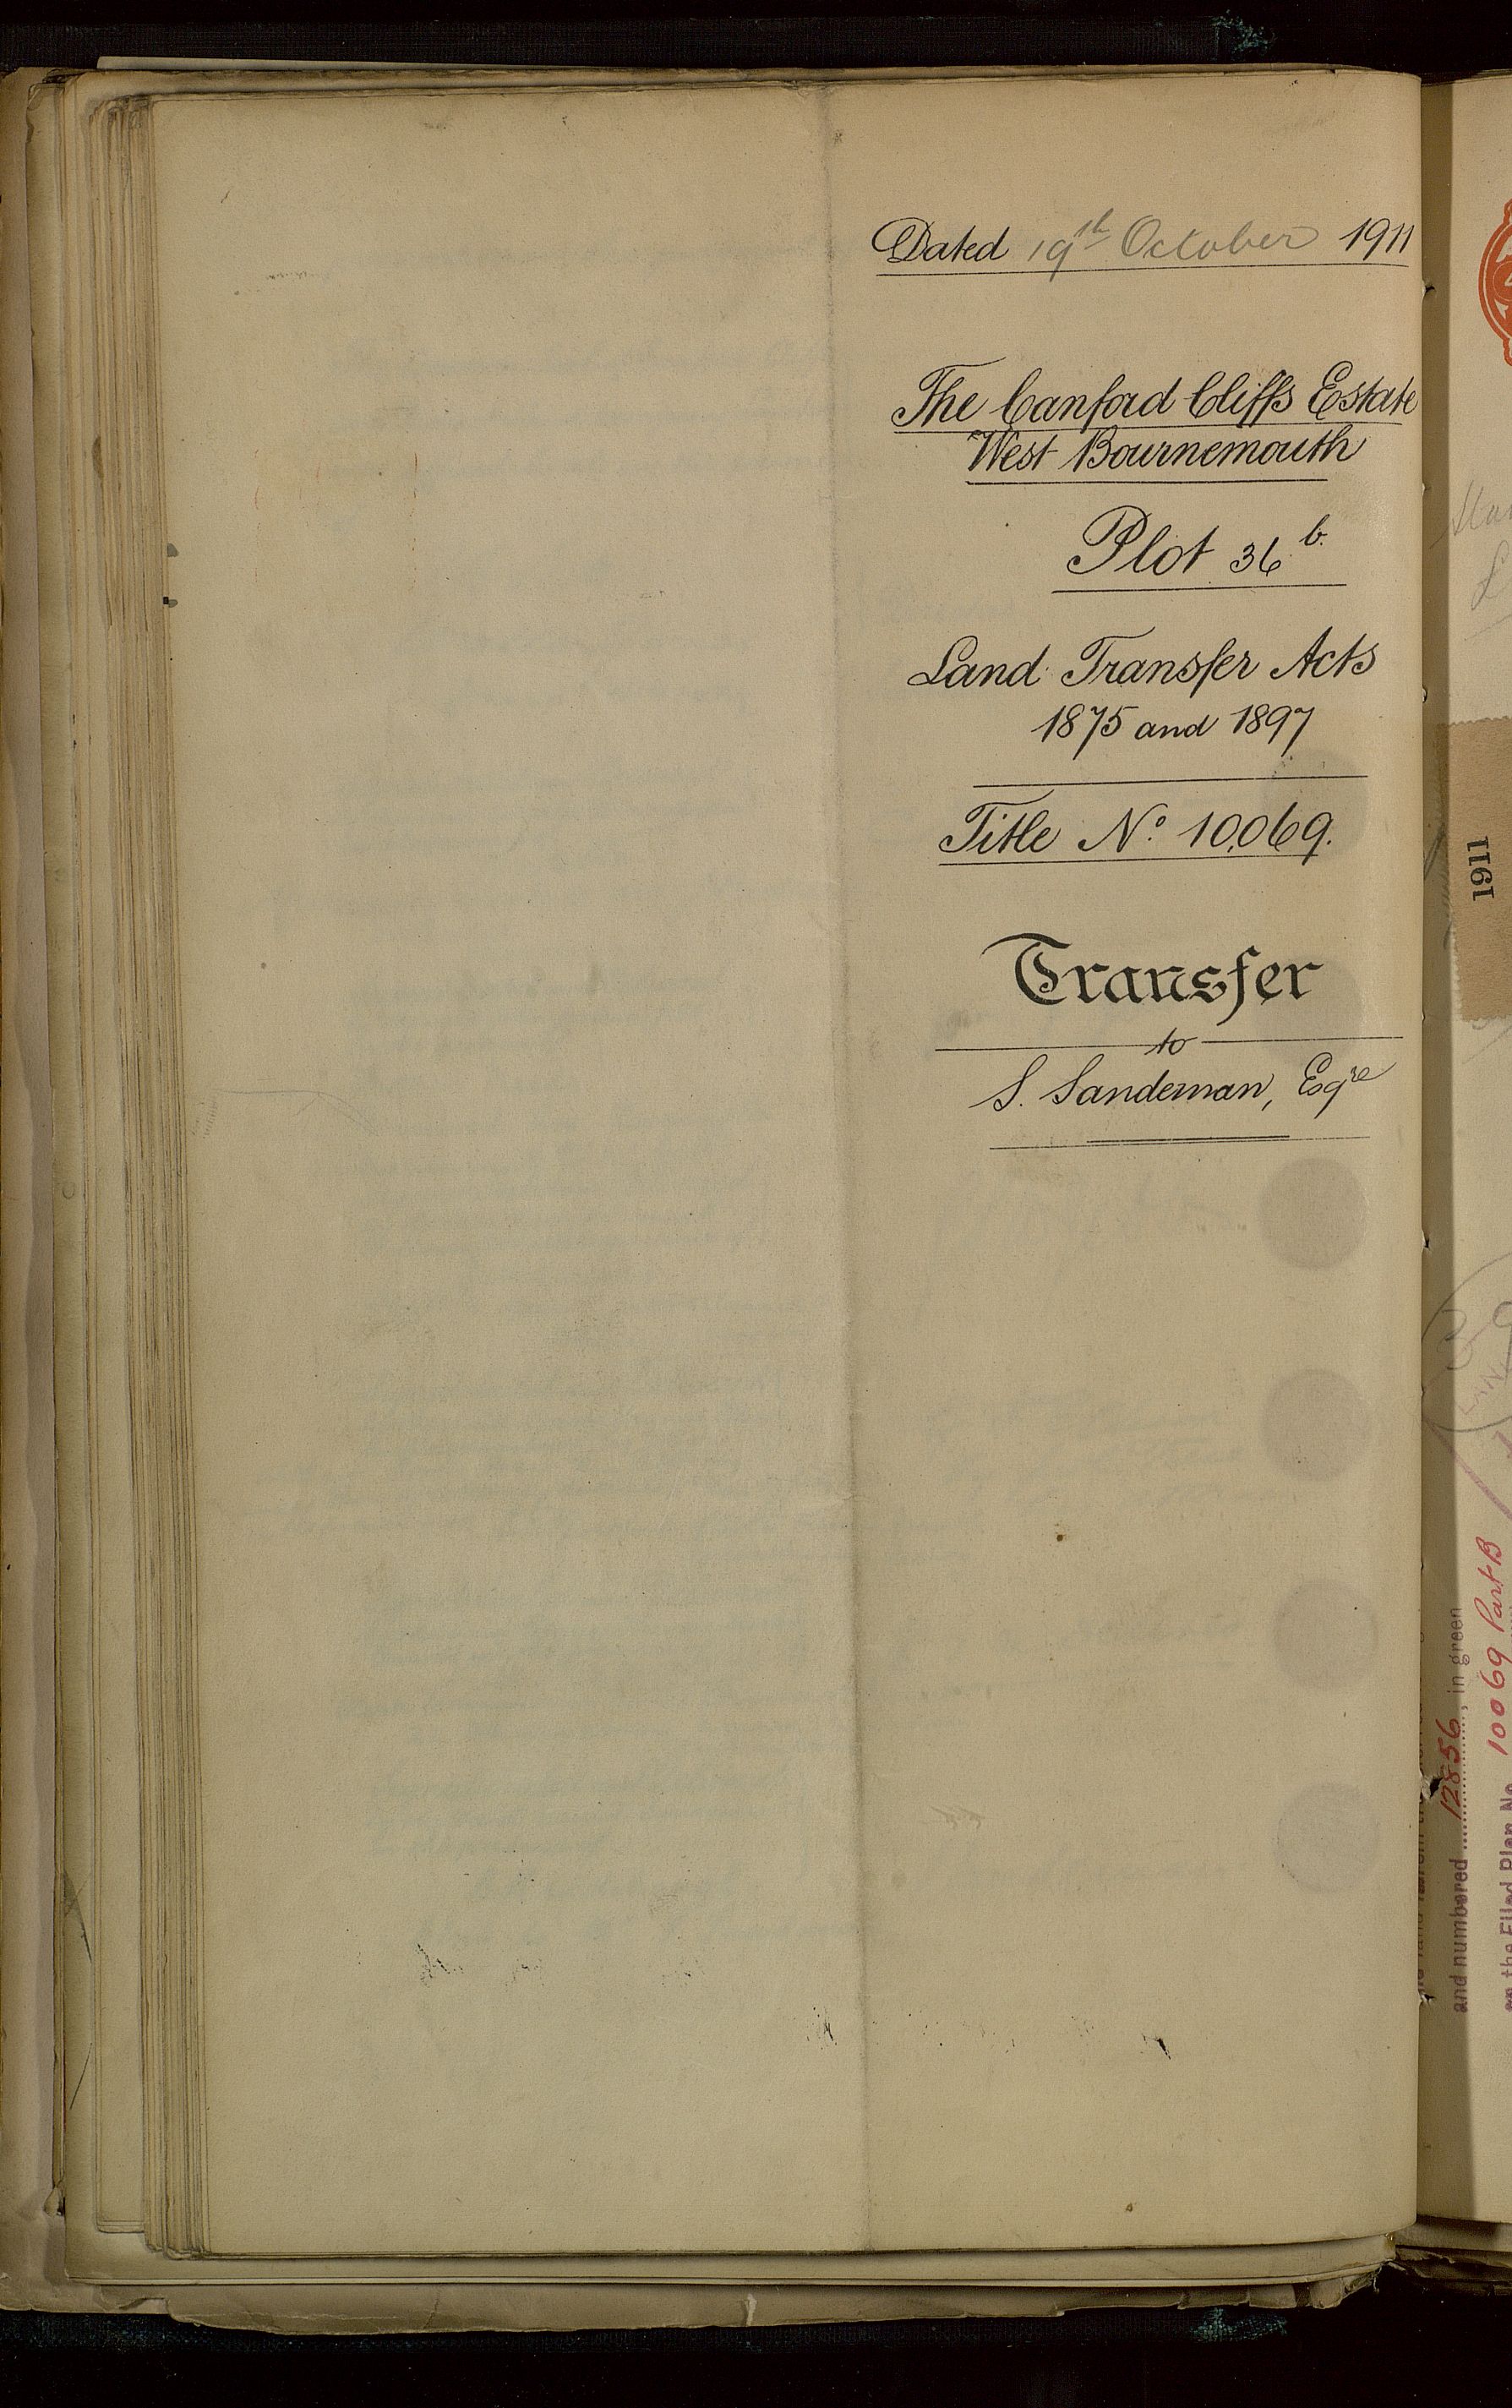 Dated 19th October 1911
The Canford Cliffs Estate
West Bournemouth
Plot 36 b.
Land Transfer Acts
1875 and 1897
Title No. 10,069.
Transfer
to
S. Sandeman, Esqre
1911
and numbered 12856, in green
on the Filed Plan No 10069 Part B